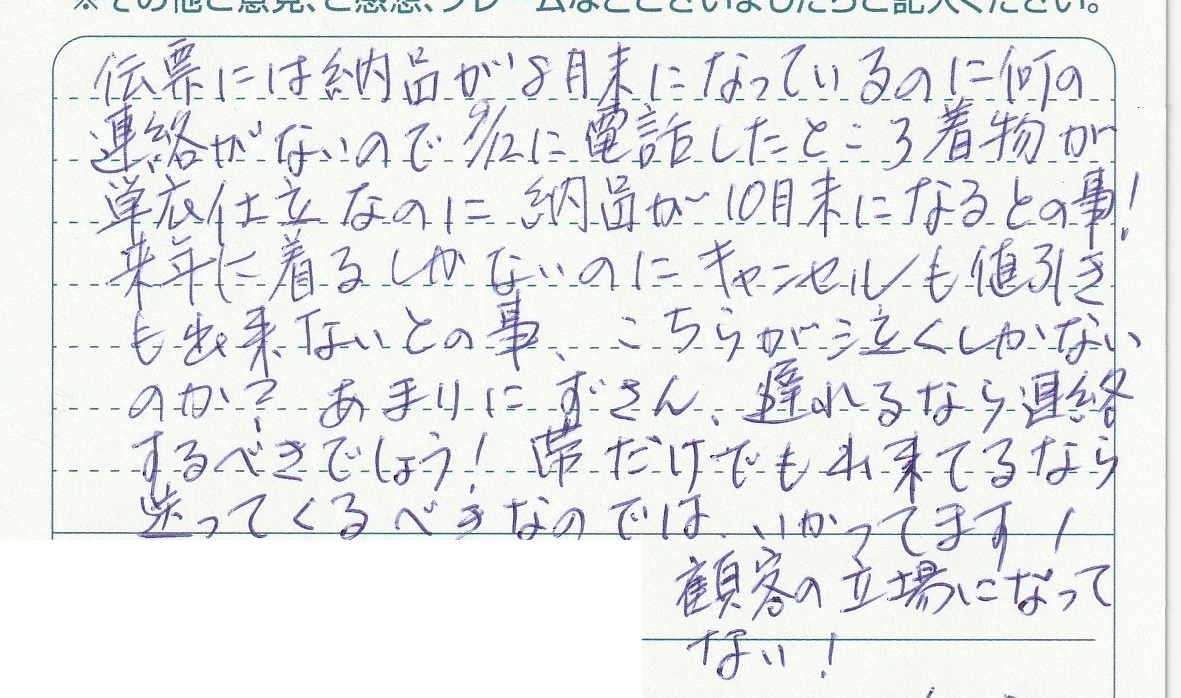 ※その他ご意見、ご感想、クレームなどございましたらご記入ください。
伝票には納品が8月末になっているのに何の
連絡がないので9/12に電話したところ着物が
単衣仕立なのに納品が10月末になるとの事!
来年に着るしかないのにキャンセルも値引き
も出来ないとの事、こちらが泣くしかない
のか?あまりにずさん、遅れるなら連絡
するべきでしょう!帯だけでも出来てるなら
送ってくるべきなのでは、いかってます!
顧客の立場になって
ない!